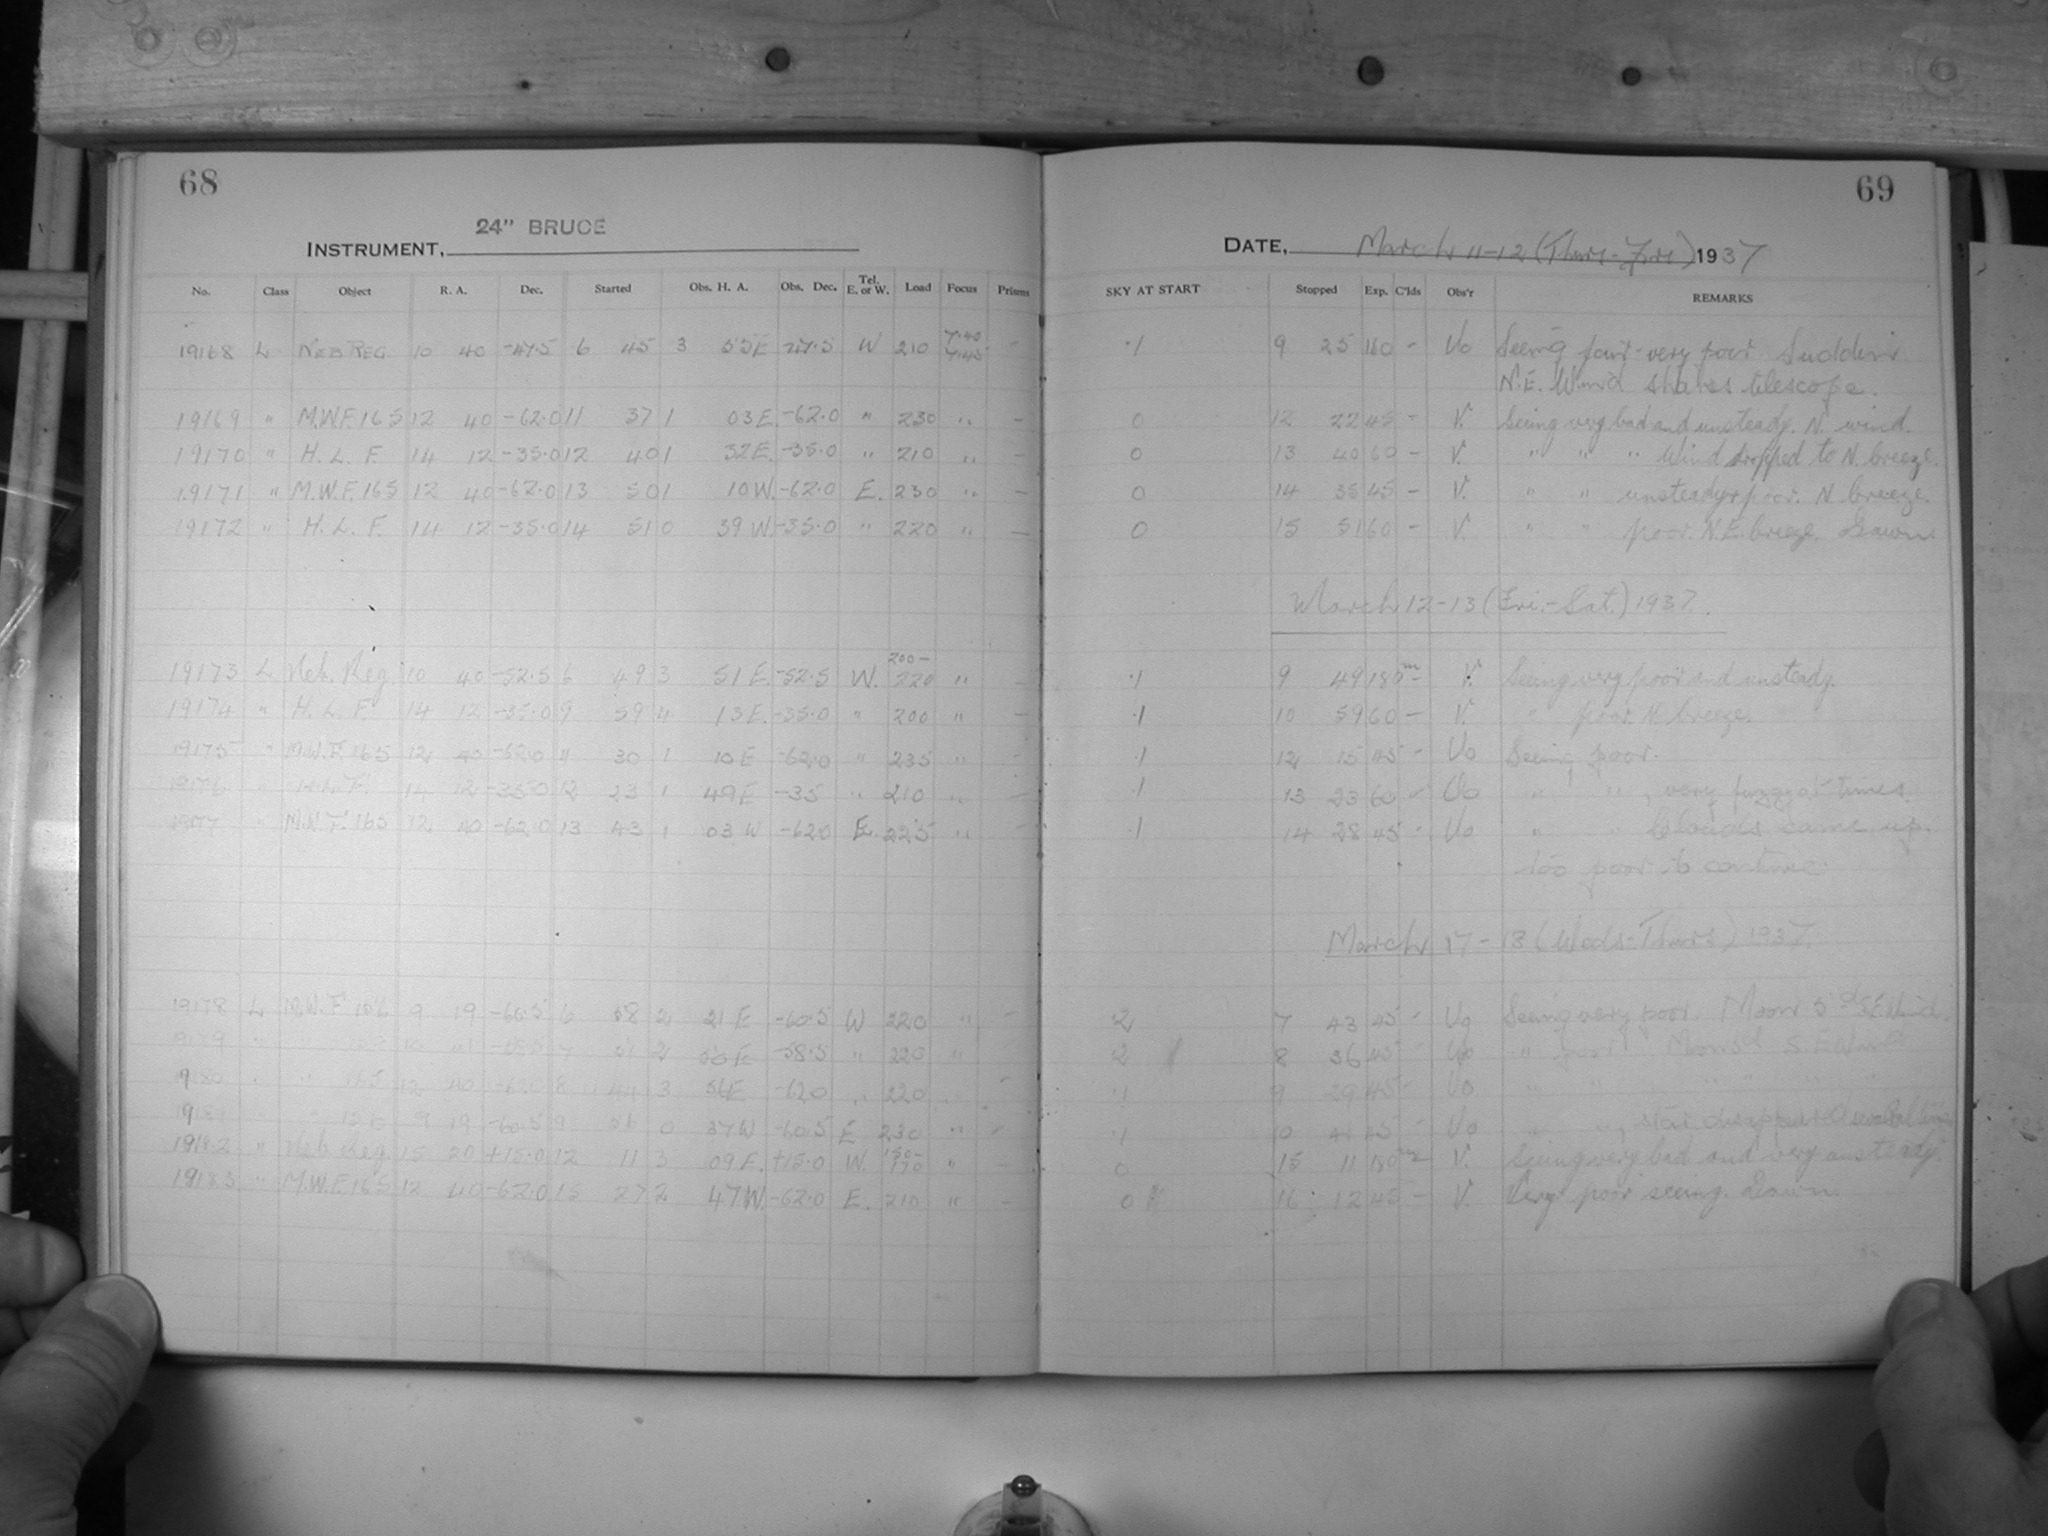 68
69
24" BRUCE
INSTRUMENT,
DATE, March 11-12 (Thurs-Fri) 1937
No. Class Object R. A. Dec. Started Obs. H. A. Obs. Dec. Tel. E. or W. Load Focus Prisms SKY AT START Stopped Exp. C'lds Obs'r REMARKS
19168 L NEB REG. 10 40 -47.5 6 45 3 55E -47.5 W 210 7.40 7.45 - .1 9 25 160 - Uo Seeing fair-very poor. Sudden
N.E. Wind shakes telescope.
19169 " M.W.F. 165 12 40 -62.0 11 37 1 03 E. -62.0 " 230 " - 0 12 22 45 - V. Seeing very bad and unsteady. N. wind.
19170 " H. L. F. 14 12 -35.0 12 40 1 32 E. -35.0 " 210 " - 0 13 40 60 - V. " " " Wind dropped to N. breeze.
19171 " M.W.F. 165 12 40 -62.0 13 50 1 10 W. -62.0 E. 230 " - 0 14 35 45 - V. " " unsteady & poor. N breeze.
19172 " H. L. F. 14 12 -35.0 14 51 0 39 W. -35.0 " 220 " - 0 15 51 60 - V. " " poor. N.E. breeze. Dawn.
March 12-13 (Fri.-Sat.) 1937.
19173 L Neb. Reg. 10 40 -52.5 6 49 3 51 E. -52.5 W. 200- 220 " - .1 9 49 180m - V. Seeing very poor and unsteady.
19174 " H. L. F. 14 12 -35.0 9 59 4 13 E. -35.0 " 200 " - .1 10 59 60 - V. " poor. N. breeze.
19175 " M.W.F. 165 12 40 -62.0 11 30 1 10 E -62.0 " 235 " - .1 12 15 45 - Uo Seeing poor.
19176 " H.L.F. 14 12 -35.0 12 23 1 49 E -35 " 210 " - .1 13 23 60 - Uo " " , very fuzzy at times.
19177 " M.W.F. 165 12 40 -62.0 13 43 1 03 W -62.0 E. 225 " - .1 14 28 45 - Uo " Clouds came up.
too poor to continue.
March 17-18 (Weds-Thurs) 1937.
19178 L M.W.F. 156 9 19 -60.5 6 58 2 21 E -60.5 W 220 " - .2 7 43 45 - Uo Seeing very poor. Moon 5d S.E. Wind.
19179 -58.5 7 51 2 50 E -58.5 " 220 " .2 8 36 45 - Uo " poor. Moon 5d S.E. Wind
19180 " 165 12 40 -62.0 8 44 3 56E -62.0 " 220 .1 9 29 45 - Uo
1918 " 156 9 19 -60.5 9 56 0 37 W -60.5 E 230 " - .1 10 41 45 - Uo , star disappeared
19182 " Neb Reg. 15 20 +15.0 12 11 3 09 E. +15.0 W. 150- 170 " - 0 15 11 180m V. Seeing very bad and very unsteady.
19183 " M.W.F. 165 12 40 -62.0 15 27 2 47 W. -62.0 E. 210 " - 0 16 12 45 - V. Very poor seeing. Dawn.